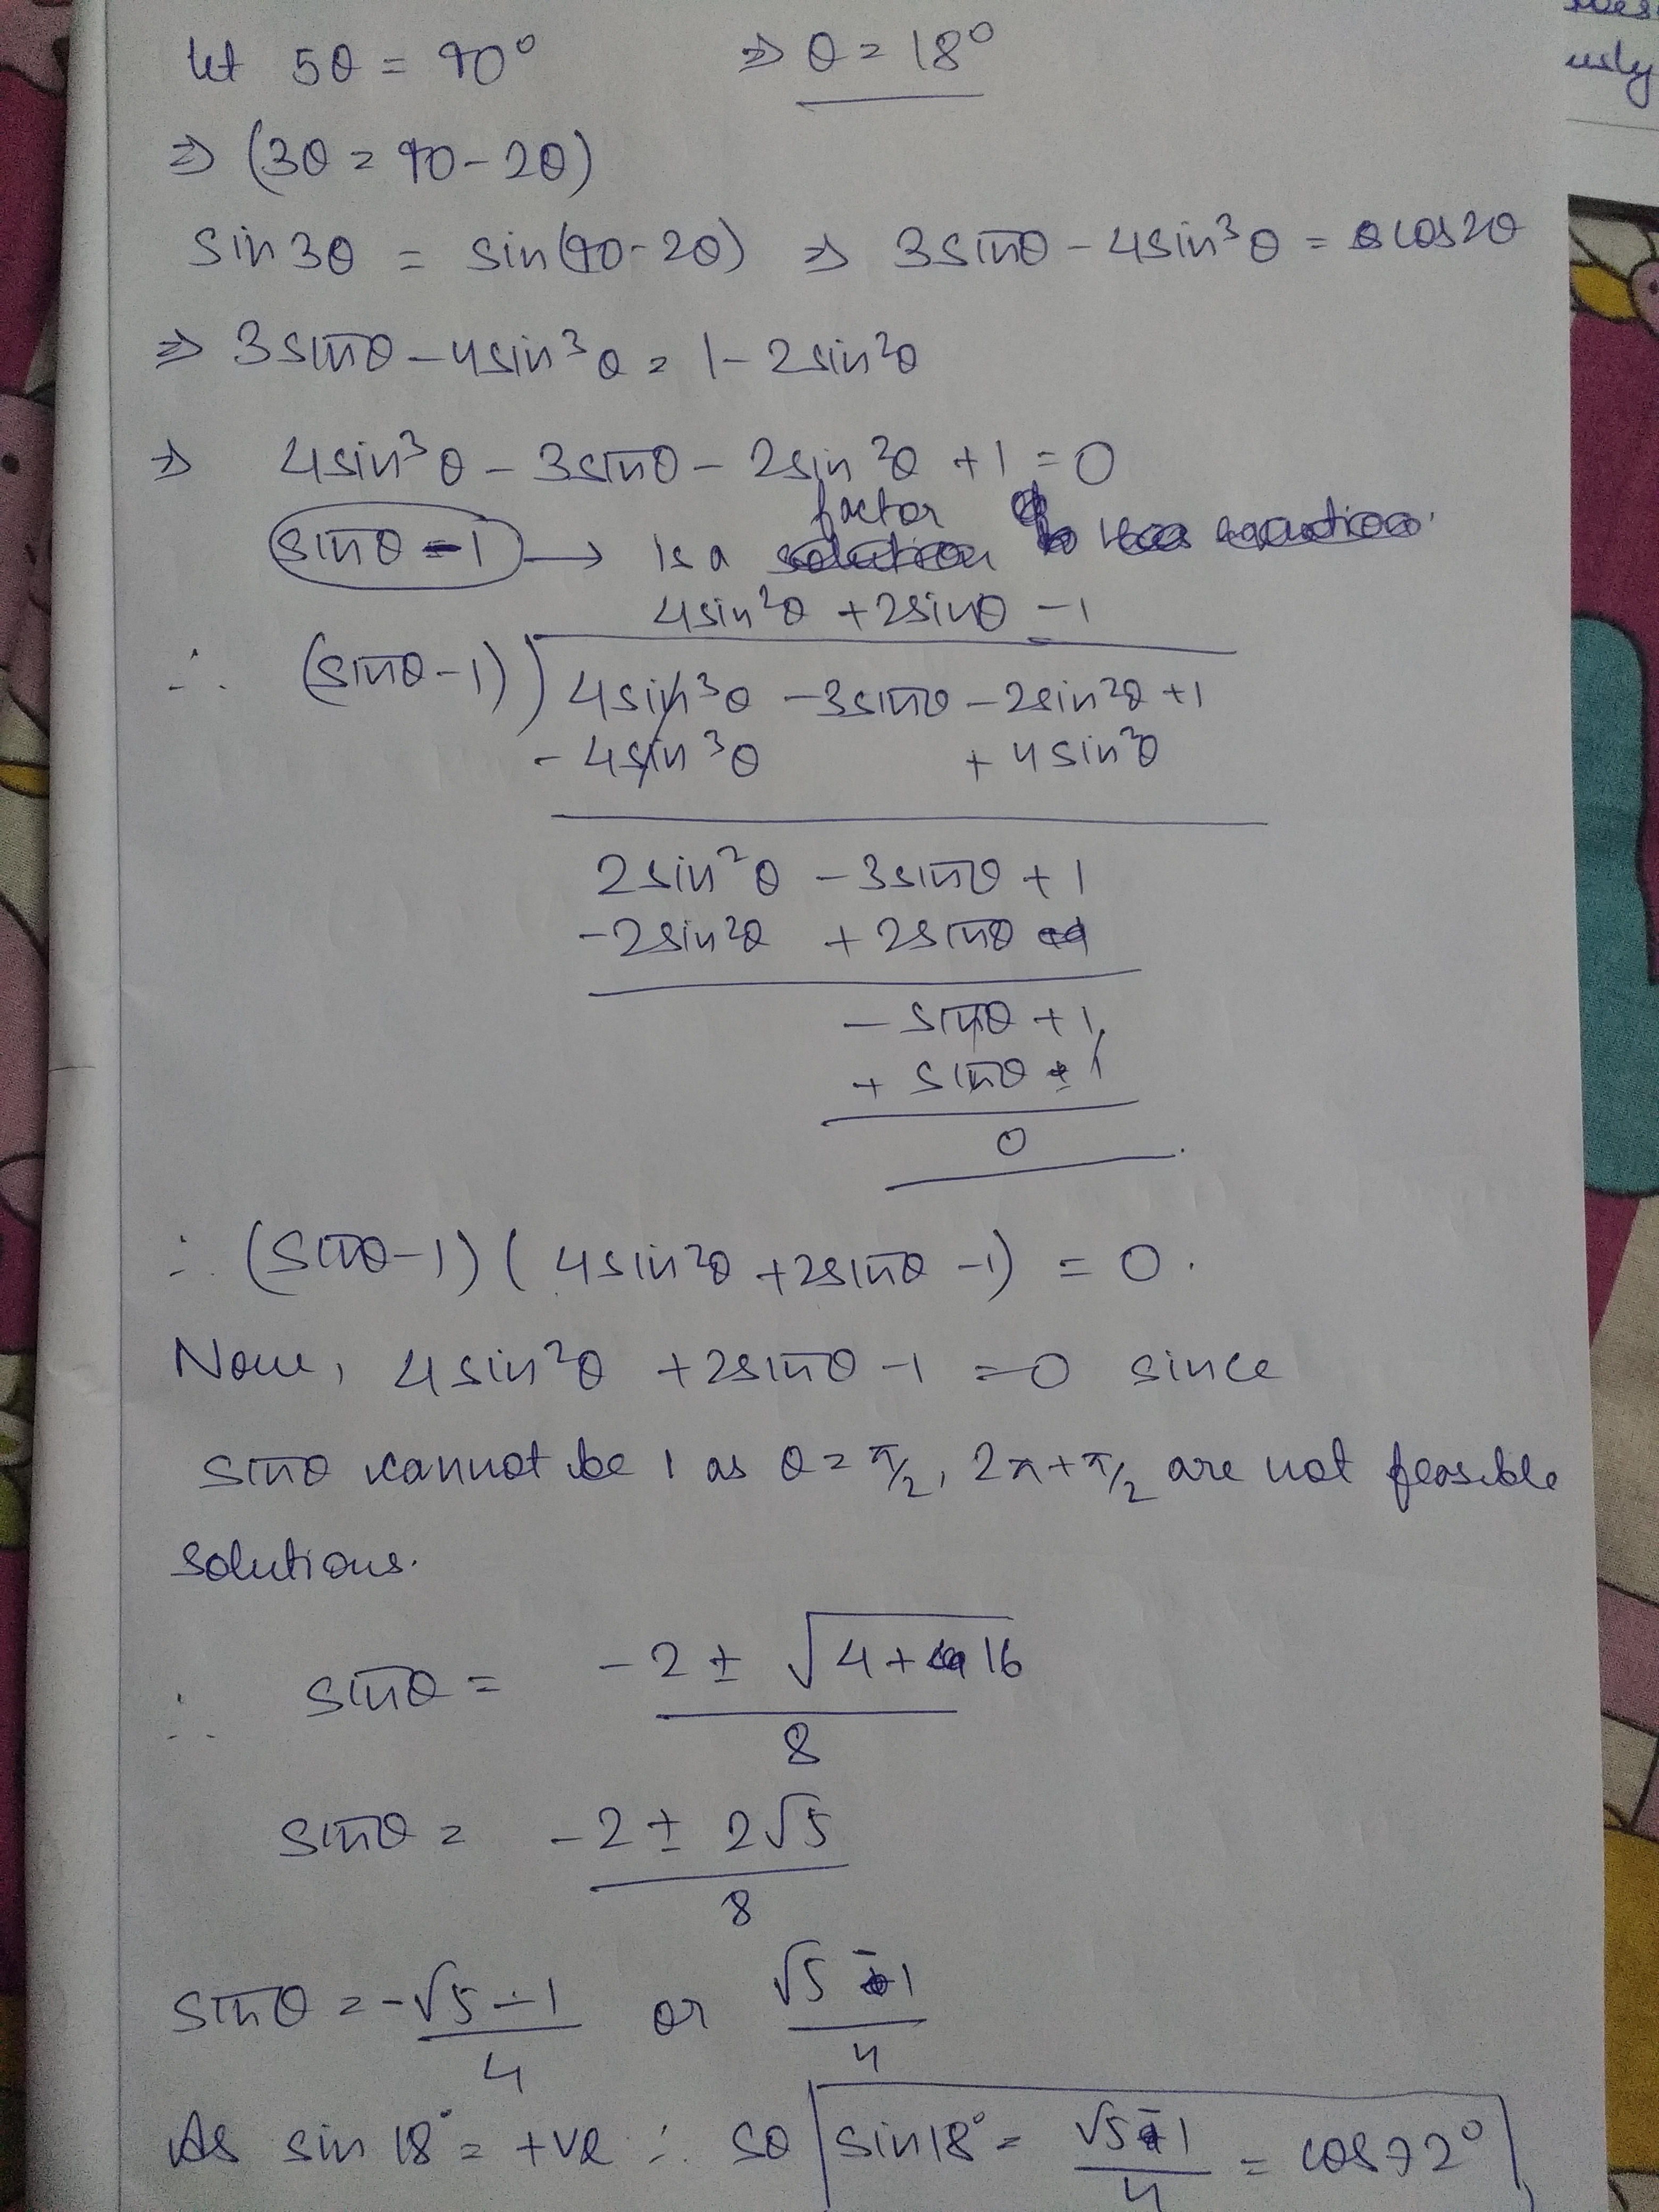 usly
let 5θ = 90° ⇒ θ = 18°
⇒ (3θ = 90 - 2θ)
sin3θ = sin(90-2θ) ⇒ 3sinθ - 4sin³θ = cos2θ
⇒ 3sinθ - 4sin³θ = 1 - 2sin²θ
⇒ 4sin³θ - 3sinθ - 2sin²θ + 1 = 0
factor of
sinθ - 1 → is a
4sin²θ + 2sinθ - 1
∴ (sinθ-1) ) 4sin³θ - 3sinθ - 2sin²θ + 1
- 4sin³θ + 4sin²θ
2sin²θ - 3sinθ + 1
-2sin²θ + 2sinθ
- sinθ + 1
+ sinθ - 1
0
∴ (sinθ-1) (4sin²θ + 2sinθ - 1) = 0.
Now, 4sin²θ + 2sinθ - 1 = 0 since
sinθ cannot be 1 as θ = π/2, 2π + π/2 are not feasible
solutions.
∴ sinθ = -2 ± √4+16
8
sinθ = -2 ± 2√5
8
sinθ = -√5 - 1 or √5 - 1
4 4
As sin 18° = +ve ∴ so sin18° = √5-1 = cos72°
4